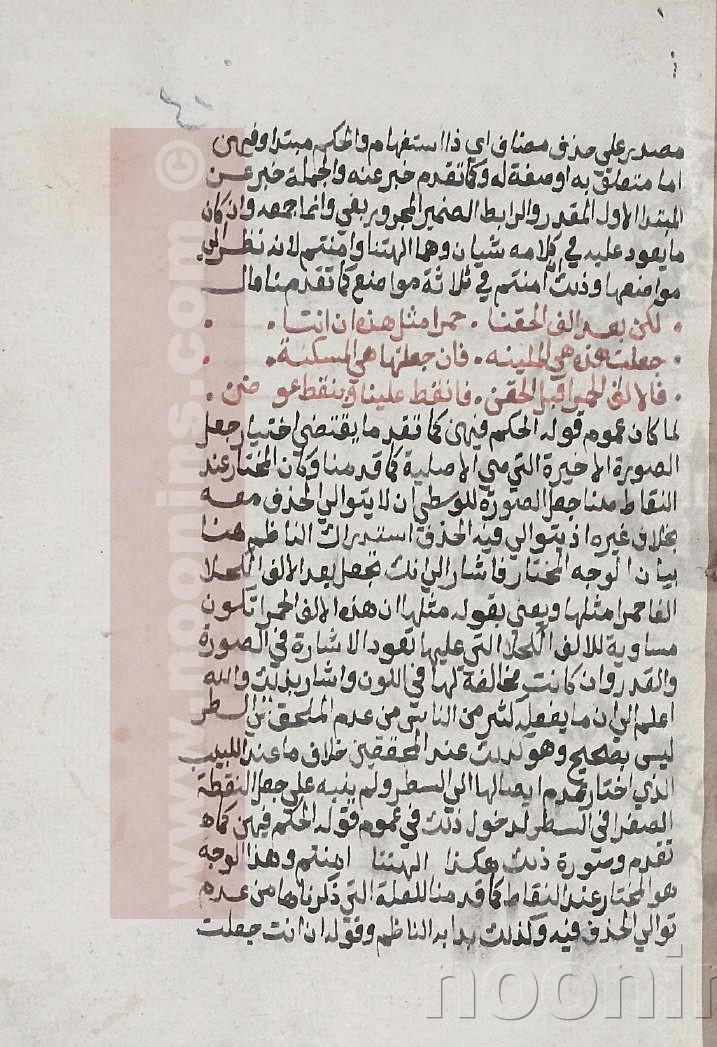 مصدر على حذف مضاف اي ذا استفهام والحكم مبتدا وفيهن
اما متعلق به او صفة له وكما تقدم خبر عنه والجملة خبر عن
المبتدا الاول المقدر والرابط الضمير المجرور بفي وانما جمعه وان كان
ما يعود عليه في كلامه شيان وهما الهتنا وامنتم لانه نظر الى
مواضعها وذلك ان امنتم في ثلاثة مواضع كما تقدم منا قال
لكن بعد الف الحقنا . حمرا مثل هذه ان انتا
جعلت هذه هي الملينه . فان جعلتها هي المسكنة
فالالف الحمرا قبل الحقن . فانقط علينا وبنقط عوضن
لما كان عموم قوله الحكم فيهن كما تقدم ما يقتضي اختيار جعل
الصورة الاخيرة التي هي الاصلية كما قدمنا وكان المختار عند
النقاط هنا جعل الصورة للوسطى ان لا يتوالى الحذف معه
بخلاف غيره اذ يتوالى فيه الحذف استدراك الناظم هنا
بيان الوجه المختار فاشار الى انك تجعل بعد الالف الكحلا
الفا حمرا مثلها ويعني بقوله مثلها ان هذه الالف الحمرا تكون
مساوية للالف الكحلا التي عليها تعود الاشارة في الصورة
والقدر وان كانت مخالفة لها في اللون واشار بذلك والله
اعلم الى ان ما يفعله كثير من الناس من عدم الملحق في السطر
ليس بصحيح وهو كذلك عند المحققين خلاف ما عند اللبيب
الذي اختار عدم ايصالها الى السطر ولم ينبه على جعل النقطة
الصفرا في السطر لدخول ذلك في عموم قوله الحكم فيهن كما
تقدم وصورة ذلك هكذا الهتنا امنتم وهذا الوجه
هو المختار عند النقاط كما قدمنا للعلة التي ذكرناها من عدم
توالي الحذف فيه وكذلك بدا به الناظم وقوله ان انت جعلت
www.noonins.com ©
noonin